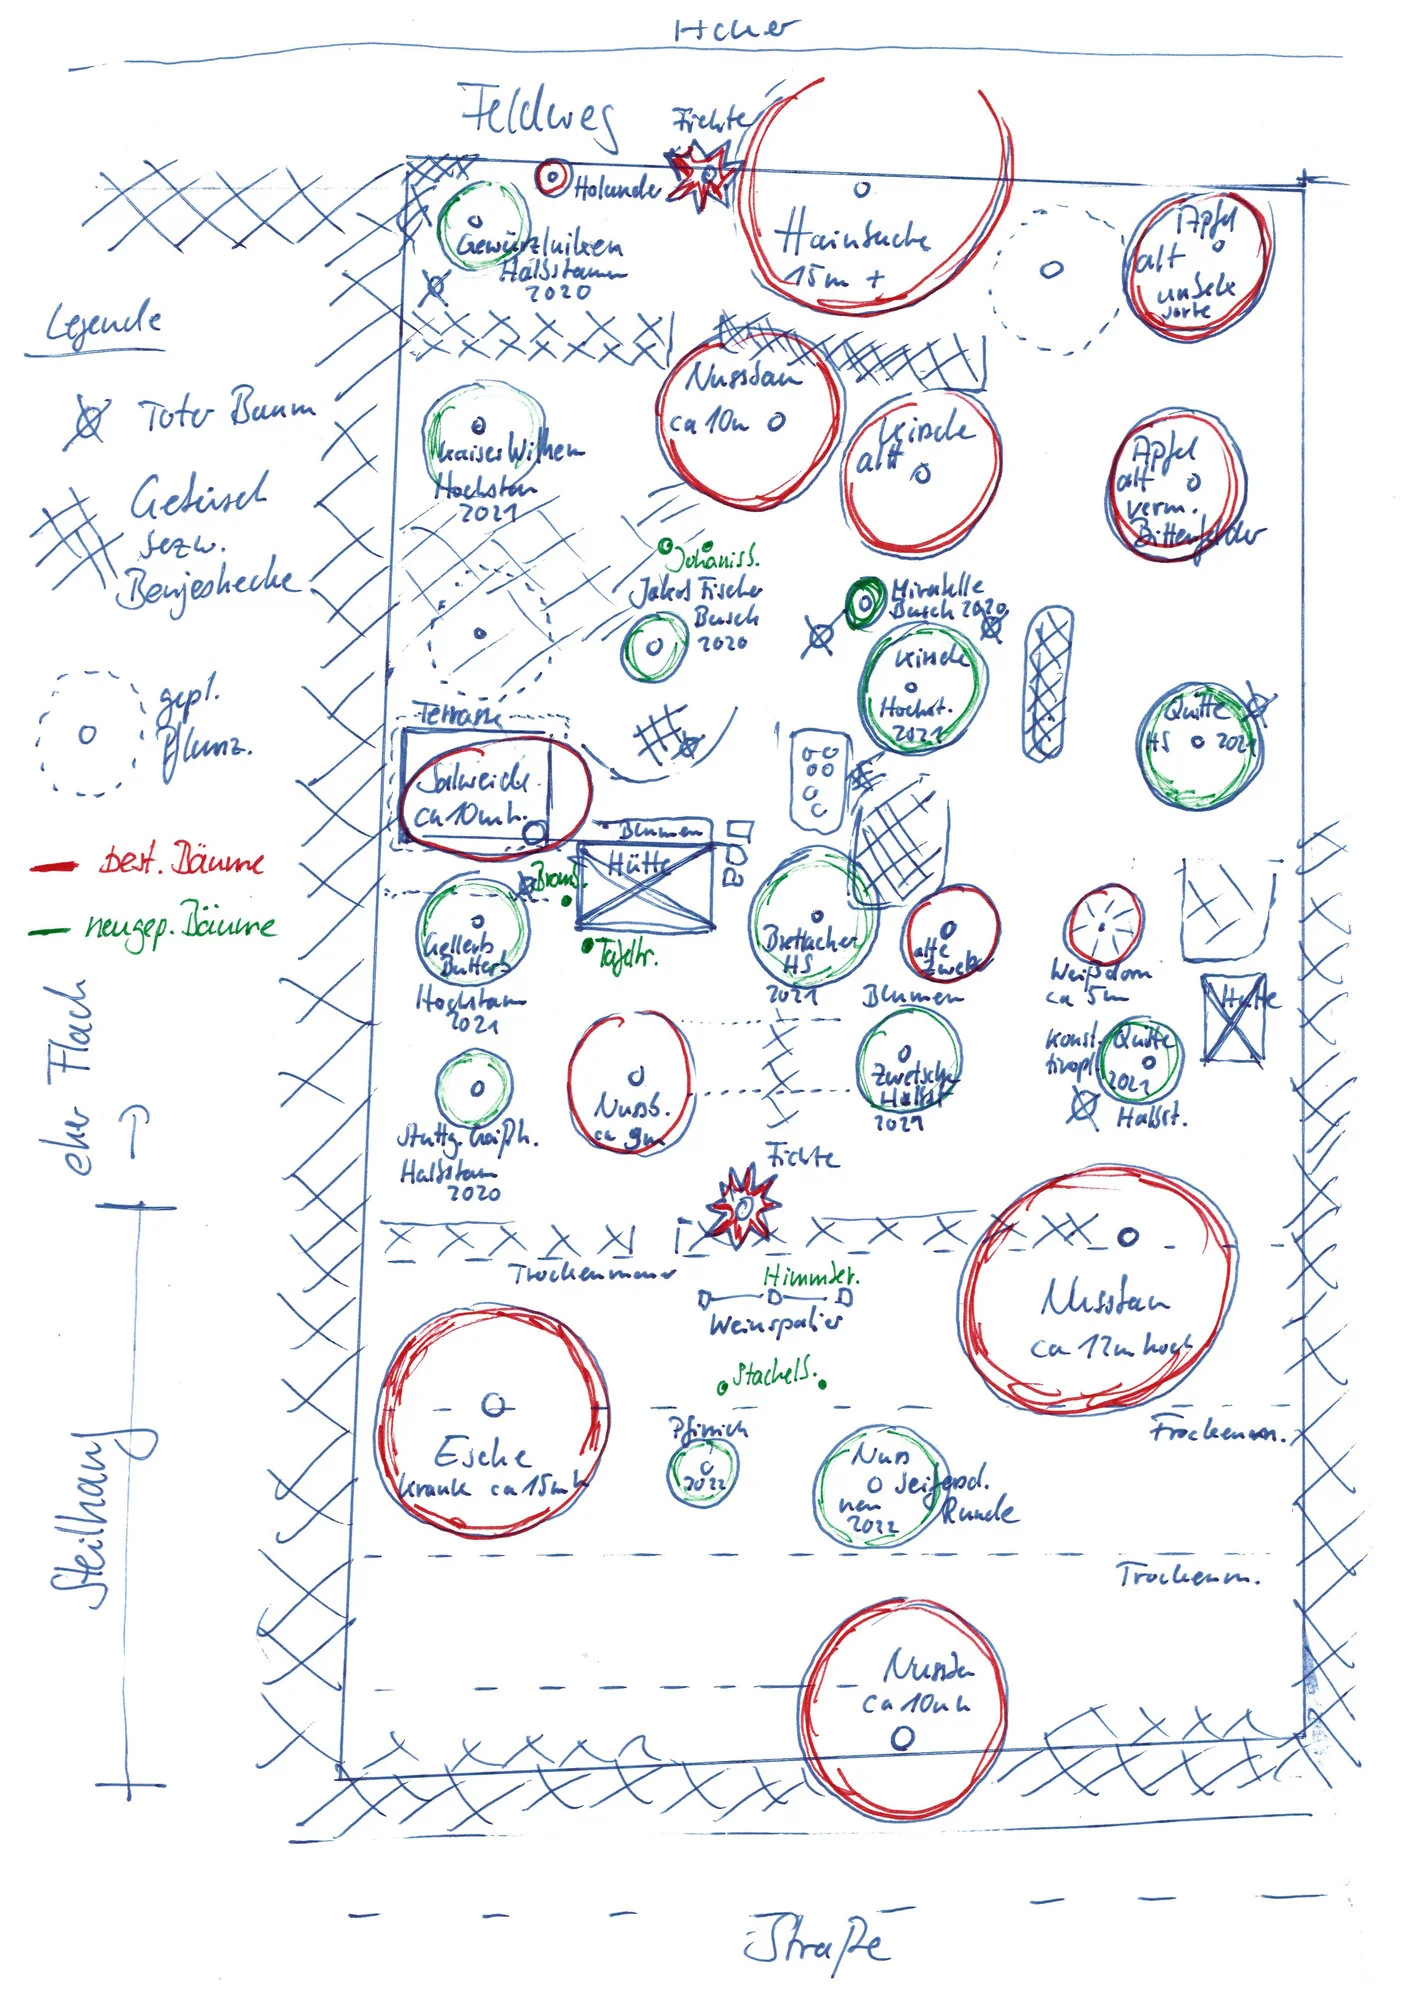 Acker
Feldweg
Fichte
Holunder
Hainbuche
15m +
Apfel
alt
unbek
Sorte
Gewürzluiken
Halbstamm
2020
Legende
Toter Baum
Gebüsch
bezw.
Benjeshecke
gepl.
Pflanz.
best. Bäume
neugep. Bäume
Nussbau
ca 10m
Kirsche
alt
Apfel
alt
verm.
Bittenfelder
Kaiser Wilhelm
Hochstam
2021
Johannisb.
Jakob Fischer
Busch
2020
Mirabelle
Busch 2020
Kirsche
Hochst.
2021
Quitte
HS 2021
Terrasse
Salweide
ca 10m h.
Blumen
Hütte
Bromb.
Tafeltr.
Gellerts
Butterb
Hochstam
2021
Brettacher
HS
2021
alte
Zwetsch
Blumen
Weißdorn
ca 5m
Hütte
Konst.
tinopl.
Quitte
2021
Halbst.
Zwetsch
Halbst
2021
Nussb.
ca 9m
Stuttg. Gaißh.
Halbstam
2020
Fichte
eher Flach
Steilhang
Trockenmauer
Himmber.
Weinspalier
Nussbau
ca 12m hoch
Stachelb.
Trockenm.
Esche
krank ca 15m h
Pfirsich
2022
Nuss
Seifersd.
neu
Runde
2022
Trockenm.
Nussba
ca 10m h
Straße